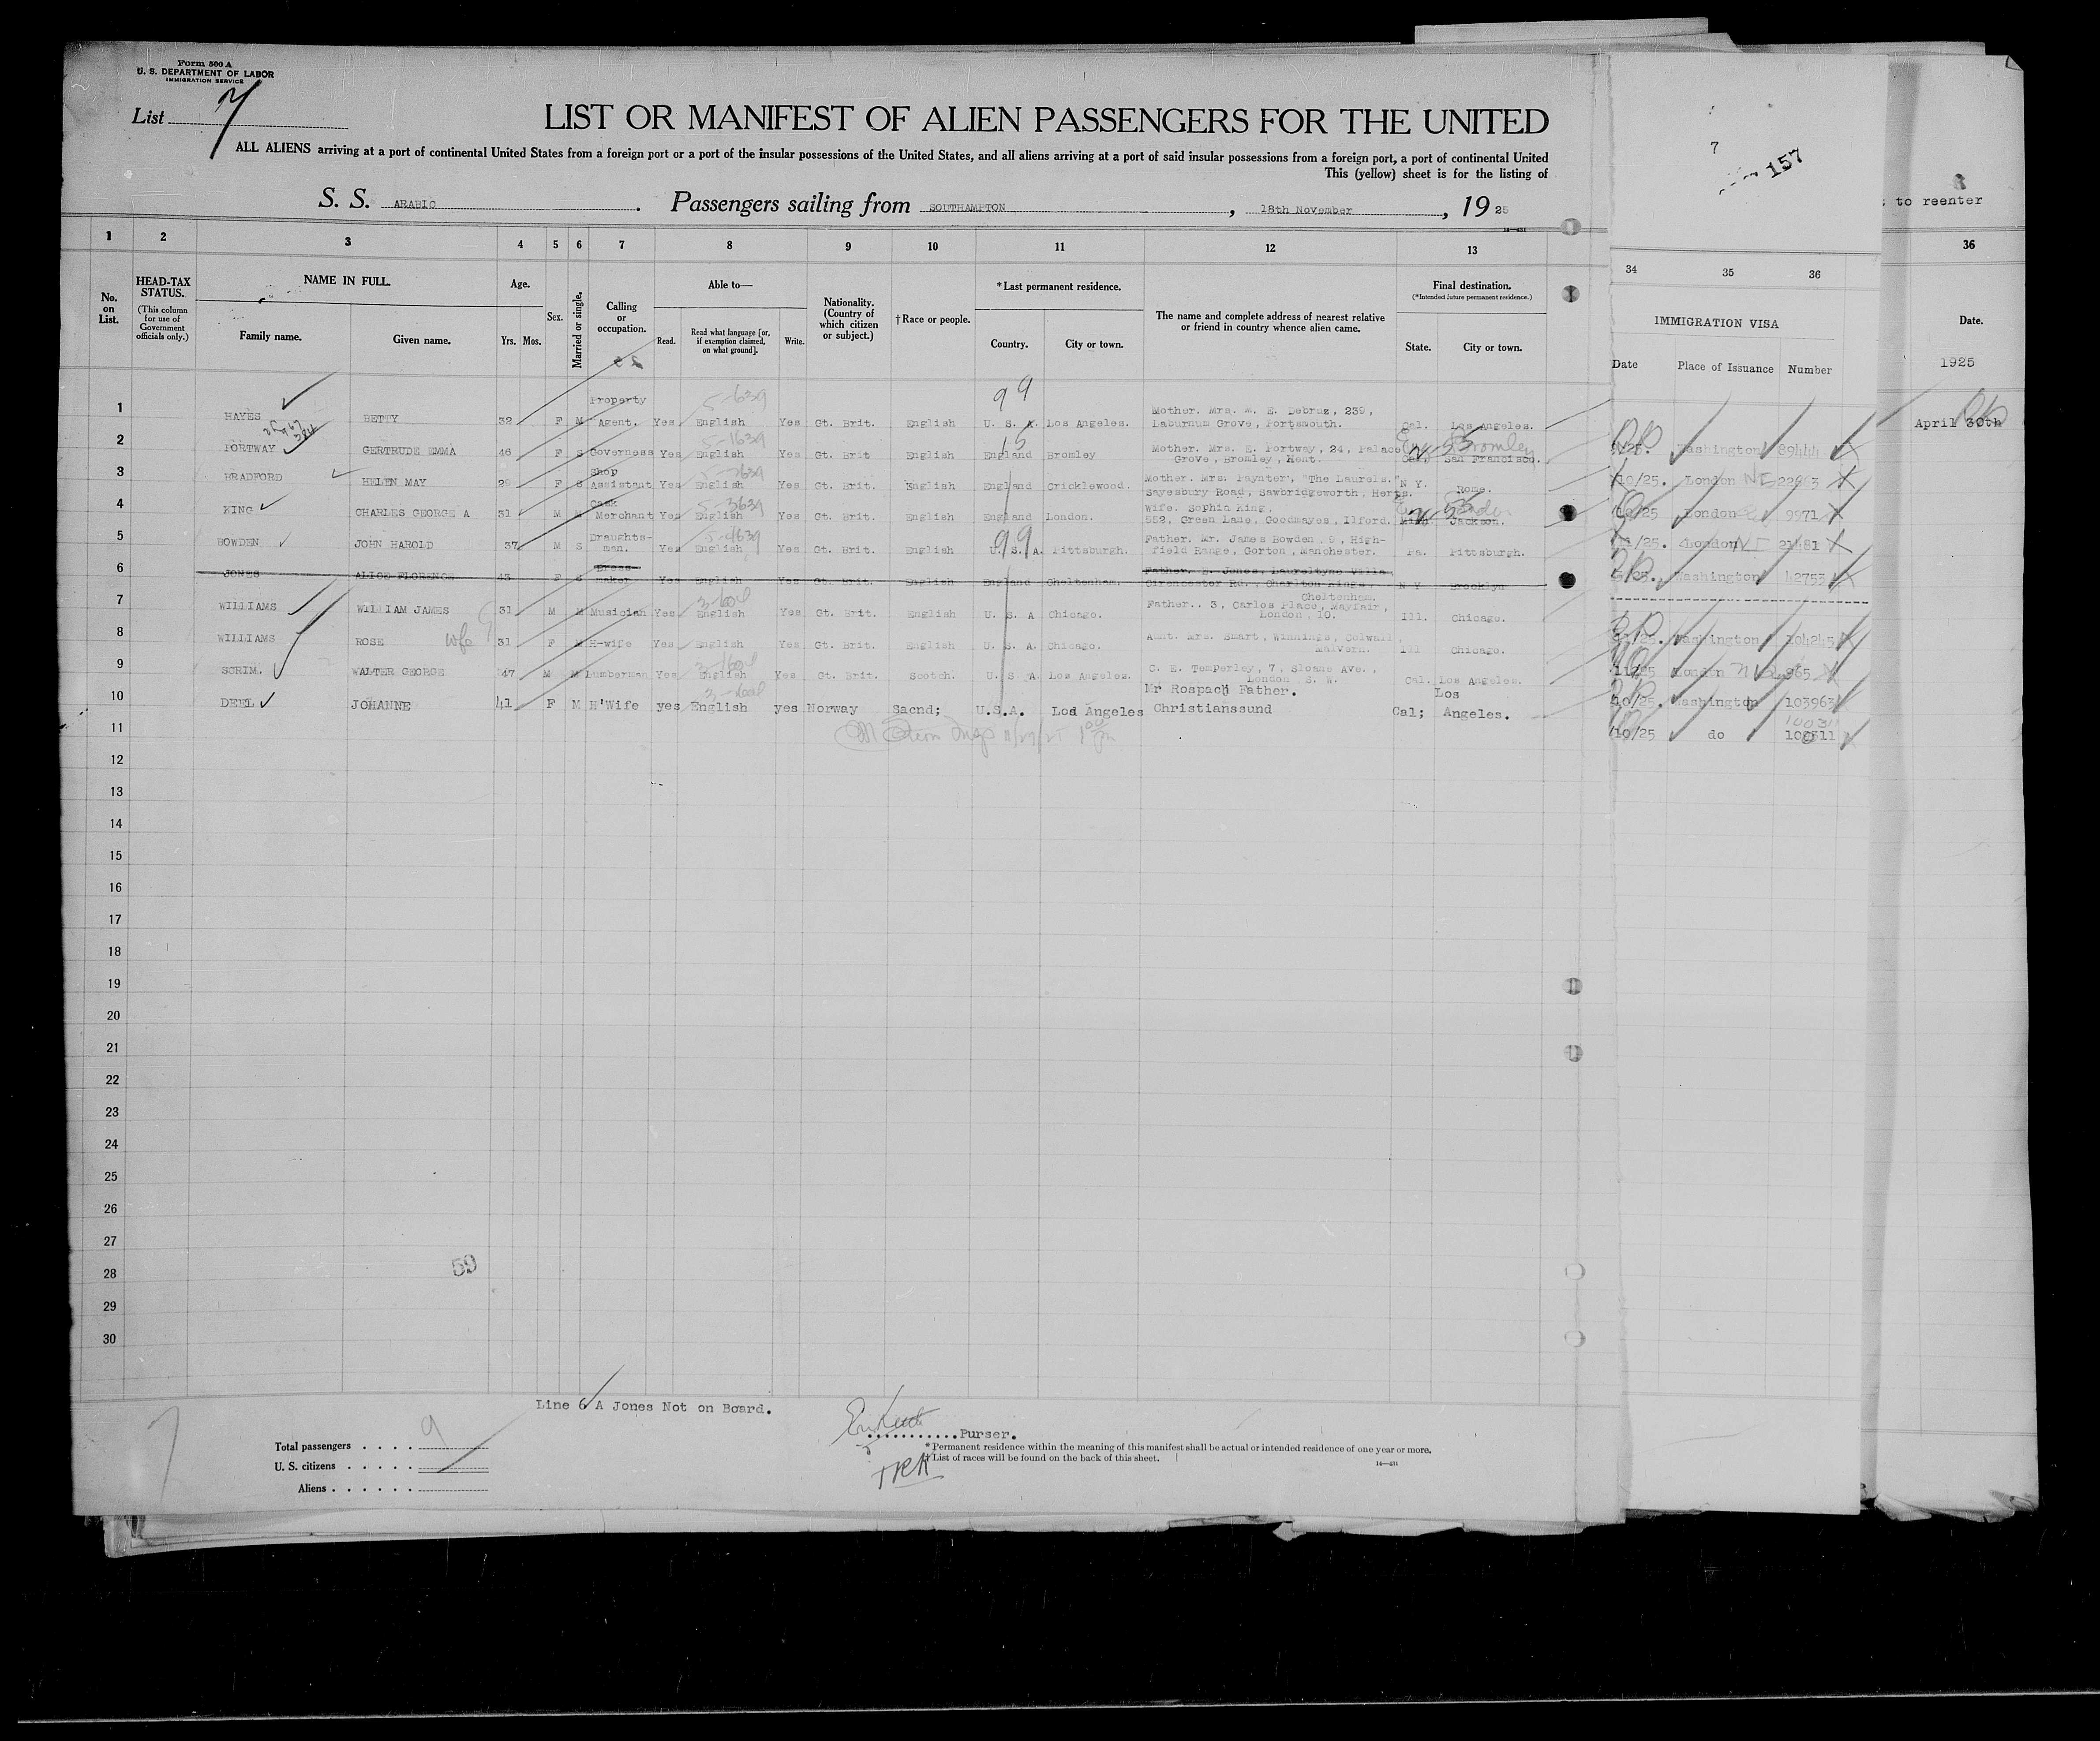 Form 500 A
U. S. DEPARTMENT OF LABOR
IMMIGRATION SERVICE
List 7
LIST OR MANIFEST OF ALIEN PASSENGERS FOR THE UNITED
ALL ALIENS arriving at a port of continental United States from a foreign port or a port of the insular possessions of the United States, and all aliens arriving at a port of said insular possessions from a foreign port, a port of continental United
This (yellow) sheet is for the listing of
S. S. ARABIC. Passengers sailing from SOUTHAMPTON, 18th November, 1925
7
157
to reenter
1 2 3 4 5 6 7 8 9 10 11 12 13
34 35 36
36
No. on List.
HEAD-TAX STATUS.
(This column for use of Government officials only.)
NAME IN FULL.
Family name. Given name.
Age.
Yrs. Mos.
Sex.
Married or single.
Calling or occupation.
Able to—
Read. Read what language [or, if exemption claimed, on what ground]. Write.
Nationality. (Country of which citizen or subject.)
†Race or people.
*Last permanent residence.
Country. City or town.
The name and complete address of nearest relative or friend in country whence alien came.
Final destination.
(*Intended future permanent residence.)
State. City or town.
IMMIGRATION VISA
Date Place of Issuance Number
Date.
1925
April 30th
1 HAYES BETTY 32 F M Property Agent. Yes English Yes Gt. Brit. English U. S. A. Los Angeles. Mother. Mrs. M. E. Debruz, 239, Laburnum Grove, Portsmouth. Cal. Los Angeles.
2 FORTWAY GERTRUDE EMMA 46 F S Governess Yes English Yes Gt. Brit English England Bromley Mother. Mrs. E. Fortway, 24, Palace Grove, Bromley, Kent. Cal. San Francisco. Bromley
3 BRADFORD HELEN MAY 29 F S Shop Assistant Yes English Yes Gt. Brit. English England Cricklewood. Mother. Mrs. Paynter, "The Laurels." Sayesbury Road, Sawbridgeworth, Herts. N Y. Rome.
4 KING CHARLES GEORGE A 31 M M Merchant Yes English Yes Gt. Brit. English England London. Wife. Sophia King, 552, Green Lane, Goodmayes, Ilford. Jackson.
5 BOWDEN JOHN HAROLD 37 M S Draughtsman. Yes English Yes Gt. Brit. English U. S. A. Pittsburgh. Father. Mr. James Bowden, 9, Highfield Range, Gorton, Manchester. Pa. Pittsburgh.
6 JONES ALICE FLORENCE F S Dressmaker Yes English Yes Gt. Brit. English England Cheltenham. Father. E. Jones, Cirencester Rd., Charlton Kings, Cheltenham. N Y Brooklyn
7 WILLIAMS WILLIAM JAMES 31 M M Musician Yes English Yes Gt. Brit. English U. S. A Chicago. Father.. 3, Carlos Place, Mayfair, London, 10. Ill. Chicago.
8 WILLIAMS ROSE wife 31 F M H-wife Yes English Yes Gt. Brit. English U. S. A. Chicago. Aunt. Mrs. Smart, Winnings, Colwall, Malvern. Ill Chicago.
9 SCRIM. WALTER GEORGE 47 M M Lumberman Yes English Yes Gt. Brit. Scotch. U. S. A. Los Angeles. C. E. Temperley, 7, Sloane Ave., London, S. W. Cal. Los Angeles.
10 DEEL JOHANNE 41 F M H'Wife yes English yes Norway Sacnd; U.S.A. Los Angeles Mr Rospach Father. Christianssund Cal; Los Angeles.
Washington 89444
10/25. London
London 9971
/25. London 21481
Washington 42753
Washington 104245
11/25 London 965
10/25. Washington 103963
10/25 do
11
12
13
14
15
16
17
18
19
20
21
22
23
24
25
26
27
28
29
30
59
Line 6 A Jones Not on Board.
7
Total passengers . . . . 9
U. S. citizens . . . . .
Aliens . . . . . .
............Purser.
* Permanent residence within the meaning of this manifest shall be actual or intended residence of one year or more.
† List of races will be found on the back of this sheet.
14—431